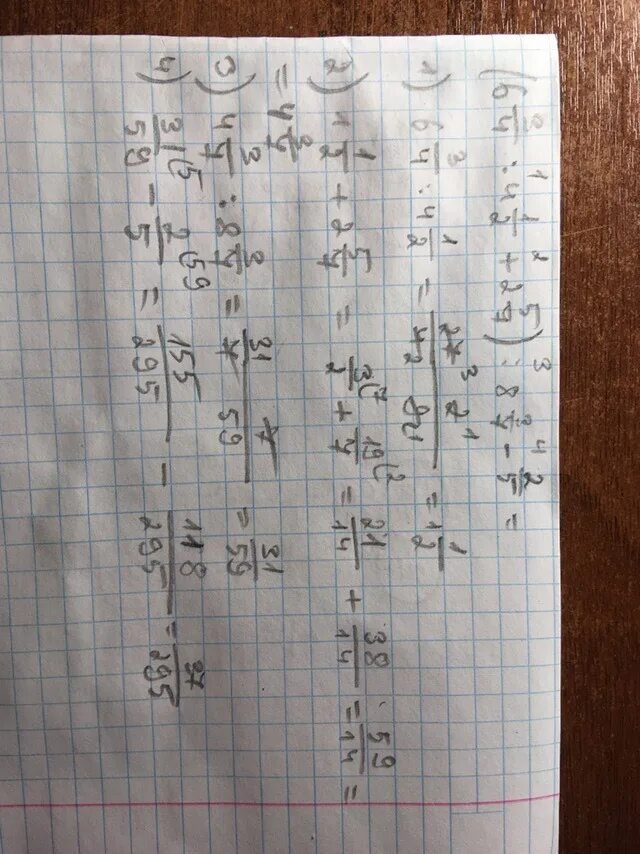 (6 3/4 : 4 1/2 + 2 5/7) : 8 3/7 - 2/5 =
1) 6 3/4 : 4 1/2 = = 1 1/2
2) 1 1/2 + 2 5/7 = 3/2 + 19/7 = 21/14 + 38/14 = 59/14 =
= 4 3/7
3) 4 3/7 : 8 3/7 = 31 7 / 7 59 = 31/59
4) 31/59 - 2/5 = 155/295 - 118/295 = 37/295